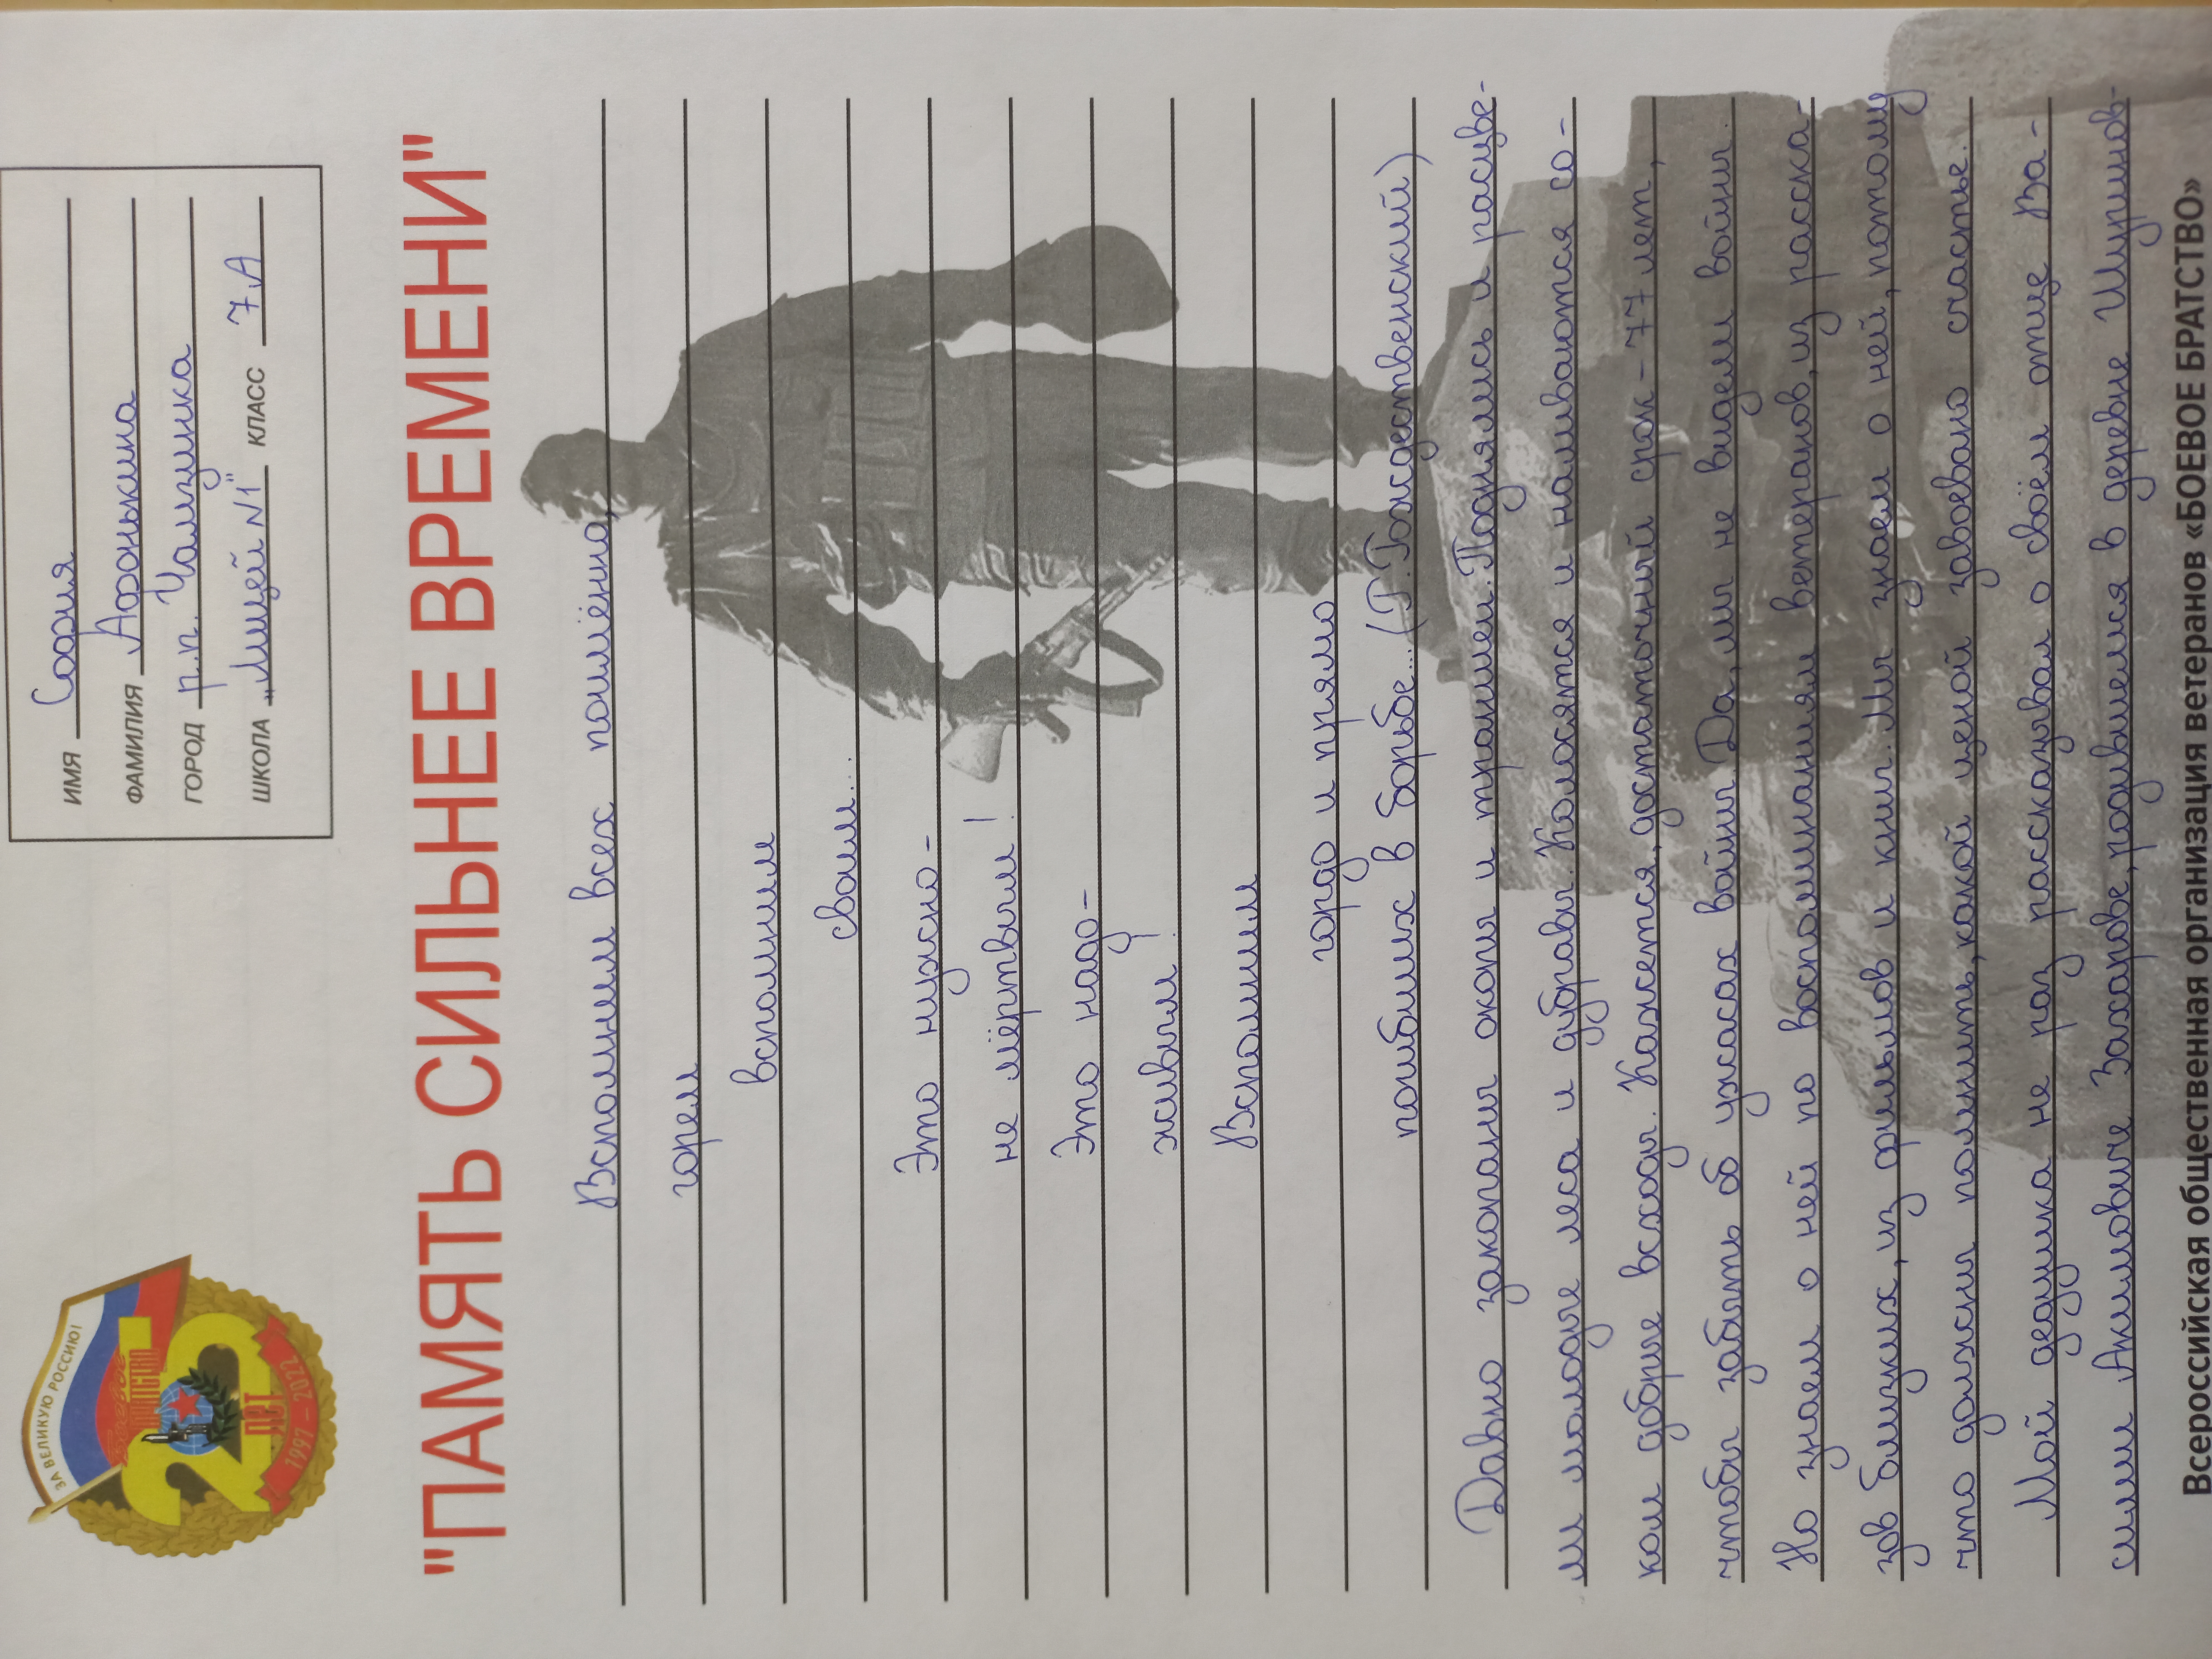 ЗА ВЕЛИКУЮ РОССИЮ!
Боевое
БРАТСТВО
25
ЛЕТ
1997 – 2022
ИМЯ София
ФАМИЛИЯ Афонькина
ГОРОД р.п. Чамзинка
ШКОЛА „Лицей №1" КЛАСС 7 А
"ПАМЯТЬ СИЛЬНЕЕ ВРЕМЕНИ"
Вспомним всех поимённо,
горем
вспомним
своим...
Это нужно-
не мёртвым!
Это надо-
живым.
Вспомним
гордо и прямо
погибших в борьбе...(Р.Рождественский)
Давно закопаны окопы и траншеи. Поднялись и расцве-
ли молодые леса и дубравы. Колосятся и наливаются со-
ком добрые всходы. Кажется, достаточный срок - 77 лет,
чтобы забыть об ужасах войны. Да, мы не видели войны.
Но знаем о ней по воспоминаниям ветеранов, из расска-
зов близких, из фильмов и книг. Мы знаем о ней, потому
что должны помнить, какой ценой завоевано счастье.
Мой дедушка не раз рассказывал о своём отце Ва-
силии Акимовиче Захарове, родившемся в деревне Шугуров-
Всероссийская общественная организация ветеранов «БОЕВОЕ БРАТСТВО»